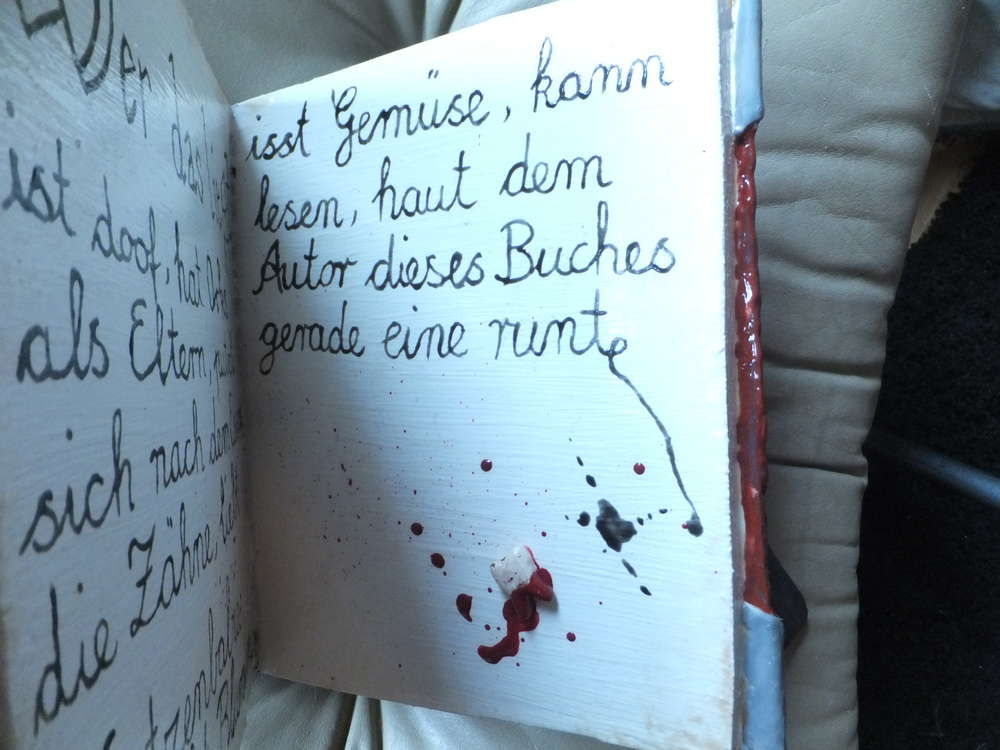 Wer das
ist doof, hat
als Eltern,
sich nach dem
die Zähne,
isst Gemüse, kann
lesen, haut dem
Autor dieses Buches
gerade eine runte